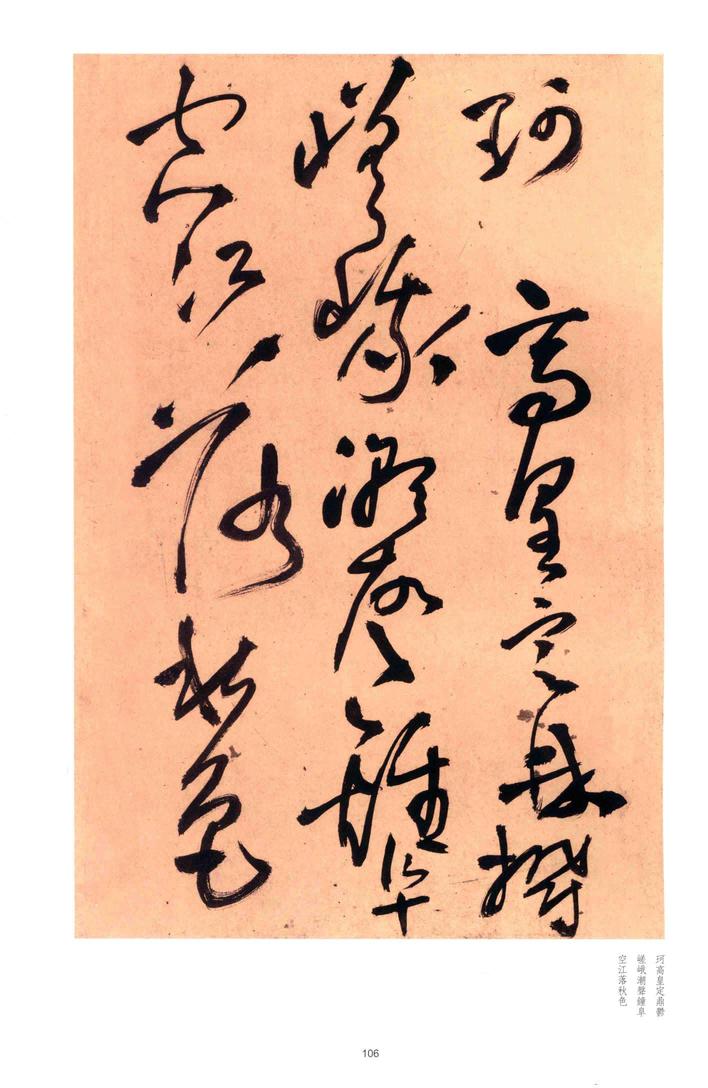 珂高皇定鼎鬱
嵯峨潮聲鐘阜
空江落秋色
珂高皇定鼎鬱
嵯峨潮聲鐘阜
空江落秋色
106